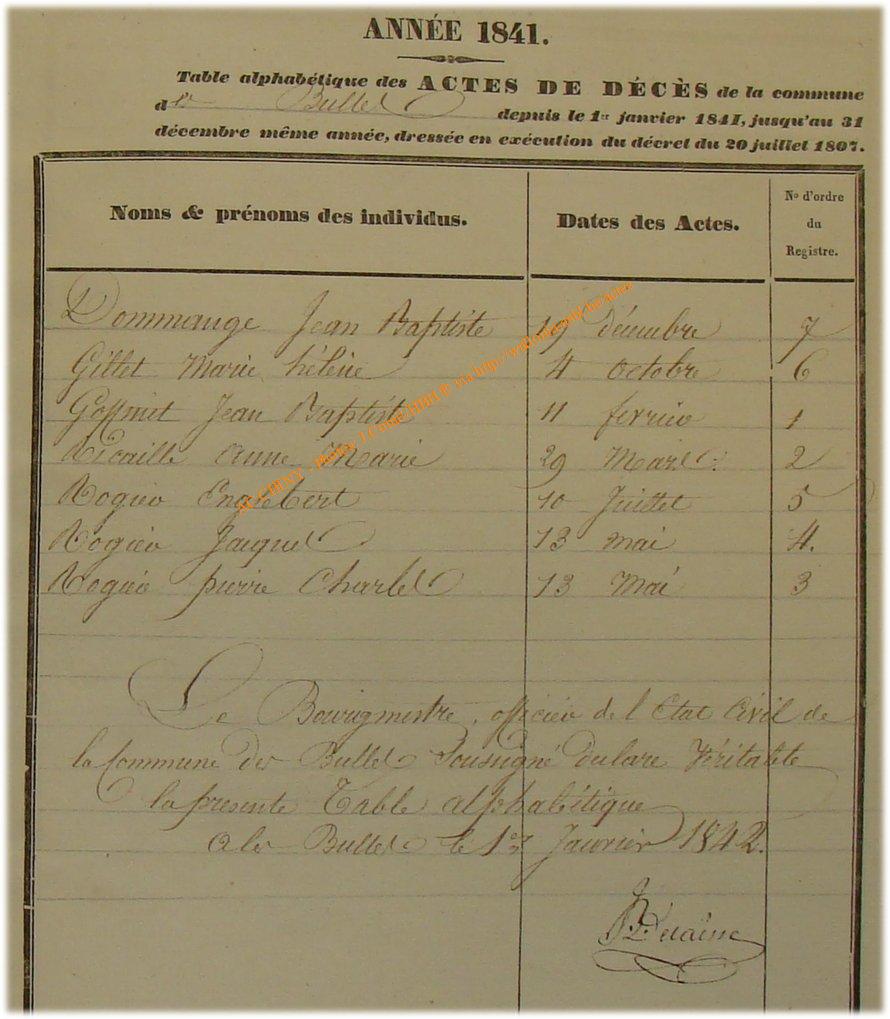 ANNÉE 1841.
Table alphabétique des ACTES DE DÉCÈS de la commune
des Bulles depuis le 1er janvier 1841, jusqu'au 31
décembre même année, dressée en exécution du décret du 20 juillet 1807.
Noms & prénoms des individus. Dates des Actes. No d'ordre du Registre.
Dommange Jean Baptiste 19 décembre 7
Gillet Marie hélène 4 octobre 6
Goffinet Jean Baptiste 11 fevrier 1
Ricaille Anne Marie 29 Mars 2
Rogier Englebert 10 Juillet 5
Rogier Jacques 13 mai 4.
Rogier pierre Charles 13 Mai 3
Le Bourgmestre, officier de l Etat Civil de
la Commune des Bulles Soussigné declare Véritable
la présente Table alphabétique
a les Bulles le 1er Janvier 1842.